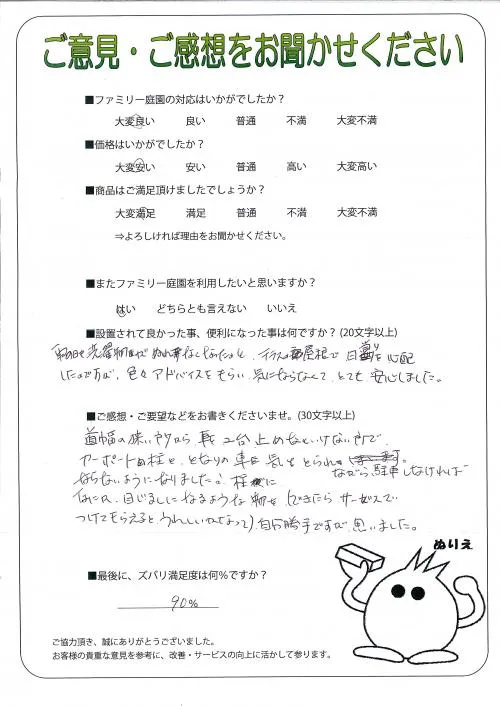 ご意見・ご感想をお聞かせください
■ファミリー庭園の対応はいかがでしたか？
大変良い 良い 普通 不満 大変不満
■価格はいかがでしたか？
大変安い 安い 普通 高い 大変高い
■商品はご満足頂けましたでしょうか？
大変満足 満足 普通 不満 大変不満
⇒よろしければ理由をお聞かせください。
■またファミリー庭園を利用したいと思いますか？
はい どちらとも言えない いいえ
■設置されて良かった事、便利になった事は何ですか？(20文字以上)
洗濯物が テラスの 屋根で 日 を心配
したのですが、色々アドバイスをもらい、気にならなくて、とても安心しました。
■ご感想・ご要望などをお書きくださいませ。(30文字以上)
道幅の狭い所から 車 2台止めないといけない所で、
カーポートの柱と、となりの車に気をとられ
ならないようになりました。柱 ながら駐車しなければ
なにか、目じるしになるような物を(できたら サービスで
つけてもらえると うれしい )自分勝手ですが思いました。
ぬりえ
■最後に、ズバリ満足度は何％ですか？
90%
ご協力頂き、誠にありがとうございました。
お客様の貴重な意見を参考に、改善・サービスの向上に活かして参ります。